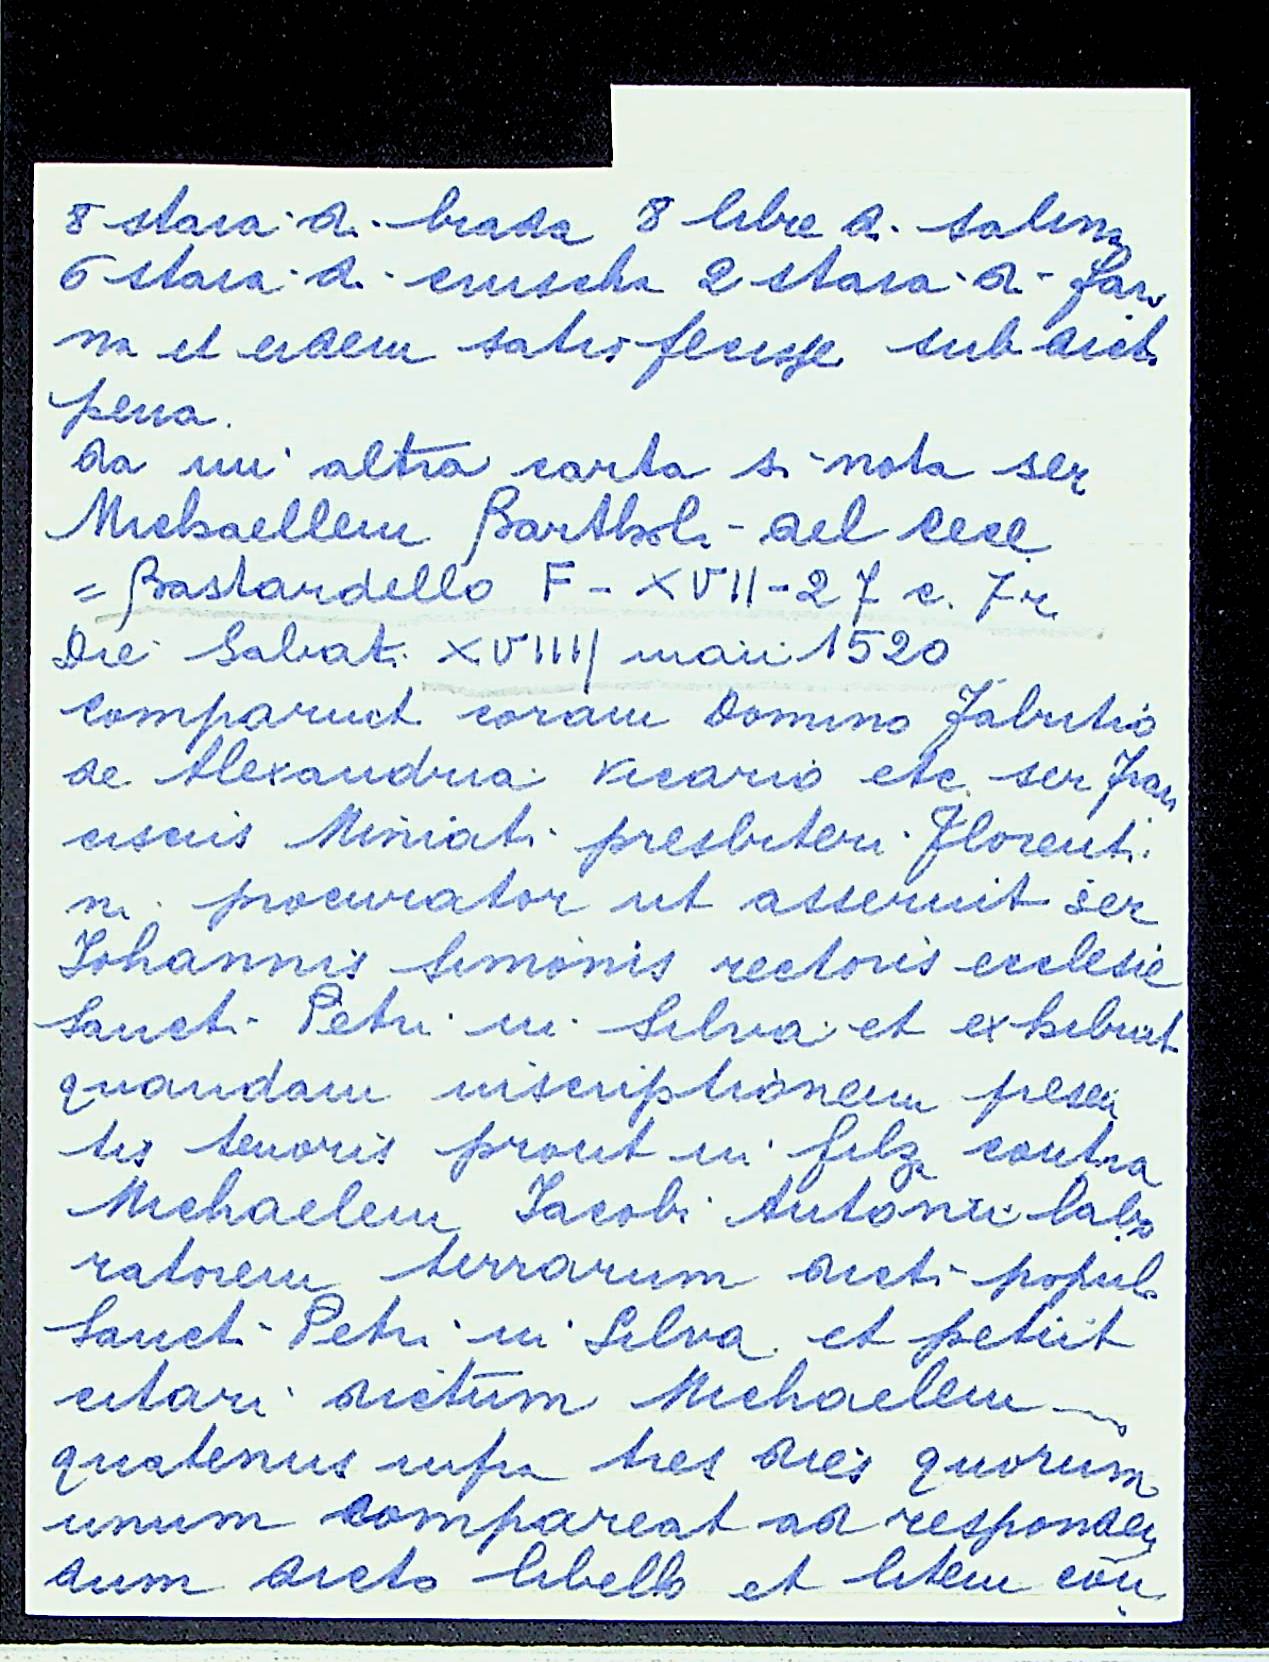 8 staia di biada 8 libre di salina
6 staia di crusca 2 staia di fari
na et eidem satisfecisse sub dict.
pena.
Da un altra carta si nota ser
Michaellem Barthol. del Cece
= Bastardello F - XVII - 27 c. 7r.
Die Sabati XVIIII maii 1520
comparuit coram Domino Fabritio
de Alexandria vicario etc. ser Fran
ciscus Miniati presbiteri Florenti
ni procurator ut asseruit ser
Johannis Simonis rectoris ecclesie
Sancti Petri in Silva et exhibuit
quandam inscriptionem presen
tis tenoris prout in filza contra
Michaelem Jacobi Antonii labo
ratorem terrarum dicti populi
Sancti Petri in Silva et petiit
citari dictum Michaelem
quatenus infra tres dies quorum
unum compareat ad responden
dum dicto libello et litem con